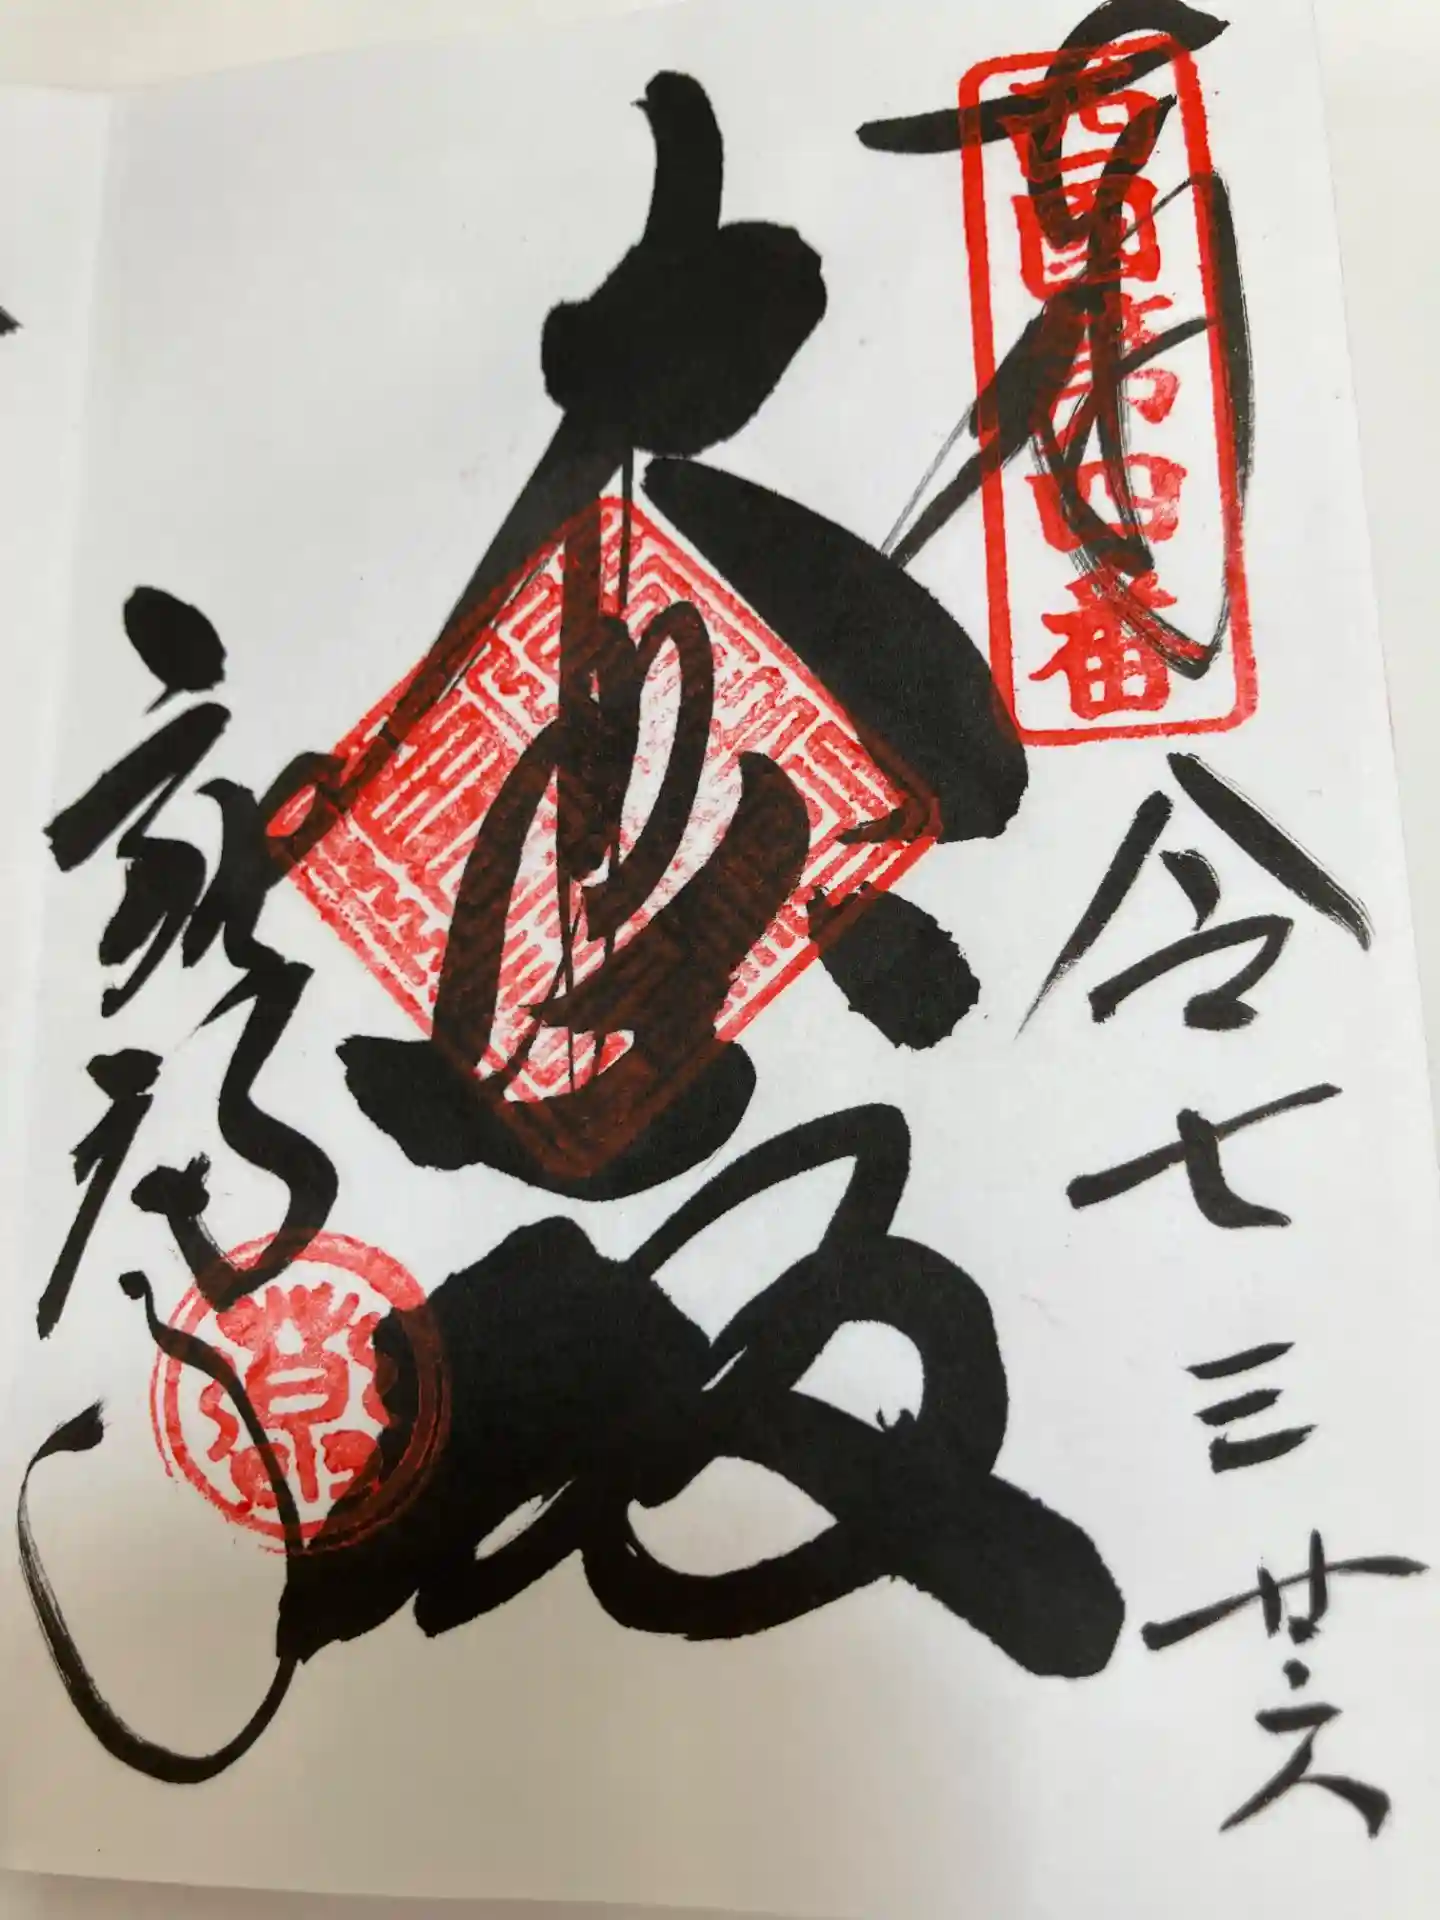 奉拝
西國第四番
令七 三 廿六
大悲殿
施福寺